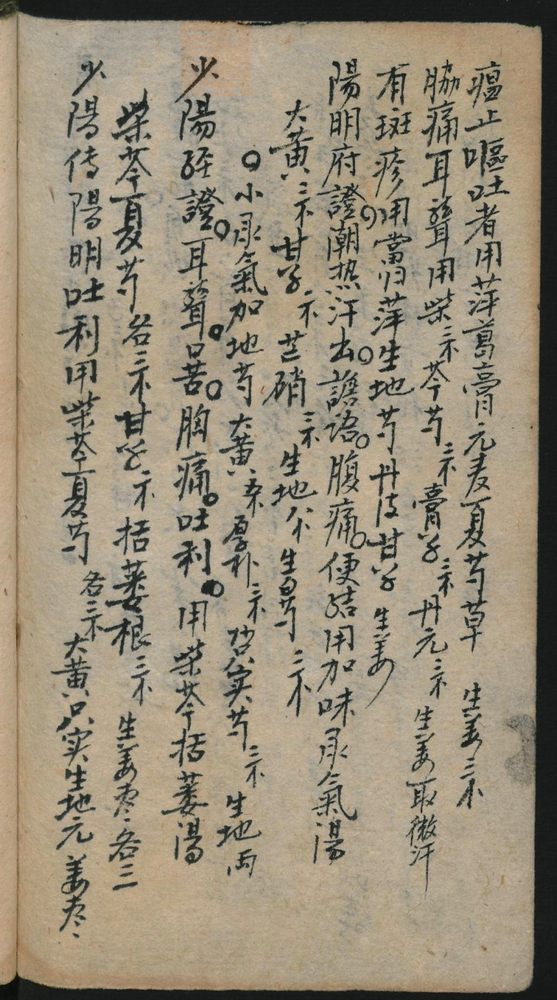 瘟止嘔吐者用萍葛膏元麦夏芍草 生姜三不
脇痛耳聋用柴三不芩芍三不膏甘三不丹元三不生姜取微汗
有斑疹用當归萍生地芍丹皮甘草生姜
陽明府證潮热汗出譫语腹痛便结用加味承氣湯
大黄三不甘草不芒硝三不生地不生白芍二不
小承氣加地芍大黄不厚朴三不枳实芍三不生地两
少陽经證耳聋口苦胸痛吐利用柴芩括蒌湯
柴芩夏芍各三不甘草不括蒌根三不生姜枣各三
少陽传陽明吐利用柴芩夏芍各三不大黄只实生地元姜枣